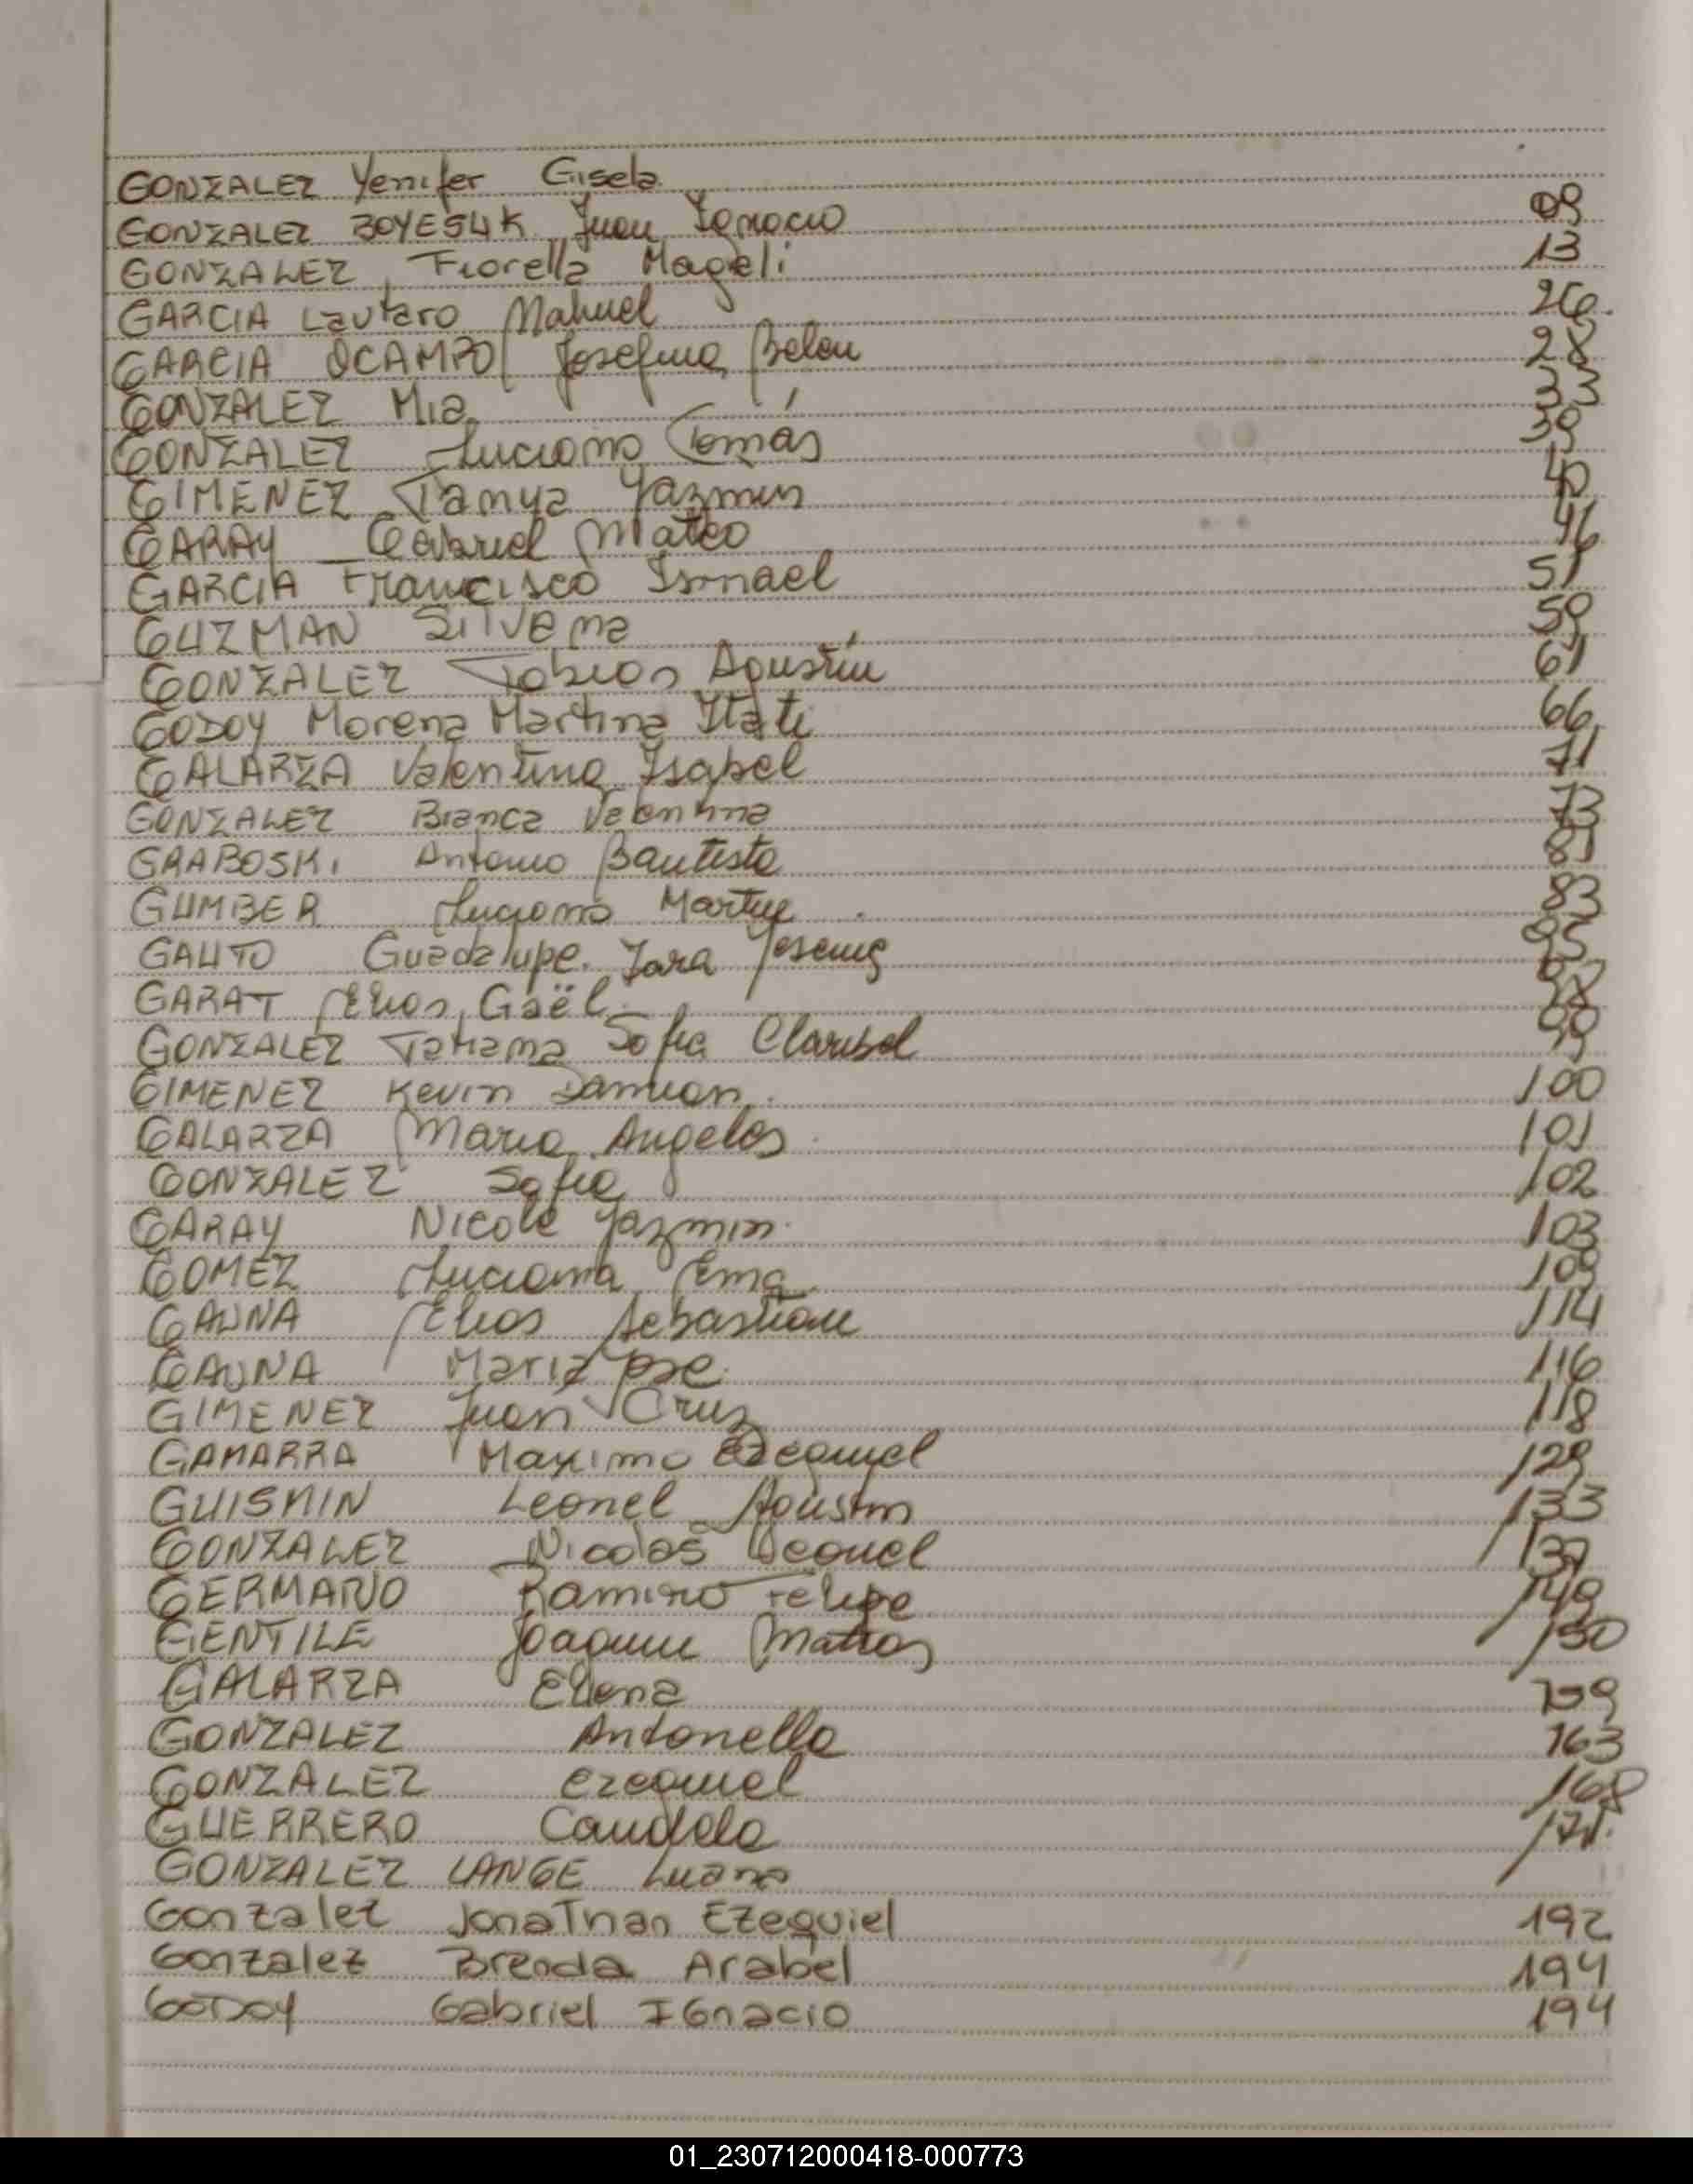 GONZALEZ Yenifer Gisela
GONZALEZ BOYESUK Juan Ignacio 09
GONZALEZ, Fiorella Mageli 13
GARCIA Lautaro Nahuel 26
GARCIA OCAMPO Josefina Belen 28
GONZALEZ Mia 33
GONZALEZ Luciano Tomás 39
GIMENEZ Tanya Yazmin 40
GARAY Gabriel Mateo 46
GARCIA Francisco Ismael 51
GUZMAN Silvana 59
GONZALEZ Tobias Agustín 61
GODOY Morena Martina Itati 66
GALARZA Valentina Isabel 71
GONZALEZ Bianca Valentina 73
GRABOSKI Antonio Bautista 81
GUMBER Luciano Martin 83
GAUTO Guadalupe Jara 95
GARAT Elias Gaël
GONZALEZ Tatiana Sofia Clarisol 99
GIMENEZ Kevin Damian 100
GALARZA Maria Angeles 101
GONZALEZ Sofia 102
GARAY Nicole Jazmin 103
GOMEZ Luciana Ema 109
GAUNA Elias Sebastian 114
GAUNA Maria Jose 116
GIMENEZ Juan Cruz 118
GAMARRA Maximo Ezequiel 129
GUISMIN Leonel Agustin 133
GONZALEZ Nicolas Uequel 137
GERMANO Ramiro Felipe 149
GENTILE Joaquin Matias 150
GALARZA Eliena 159
GONZALEZ Antonella 163
GONZALEZ ezequiel 168
GUERRERO Candela 171
GONZALEZ LANGE Luana
Gonzalez Jonathan Ezequiel 192
Gonzalez Brenda Arabel 194
GODOY Gabriel IGnacio 194
01_230712000418-000773